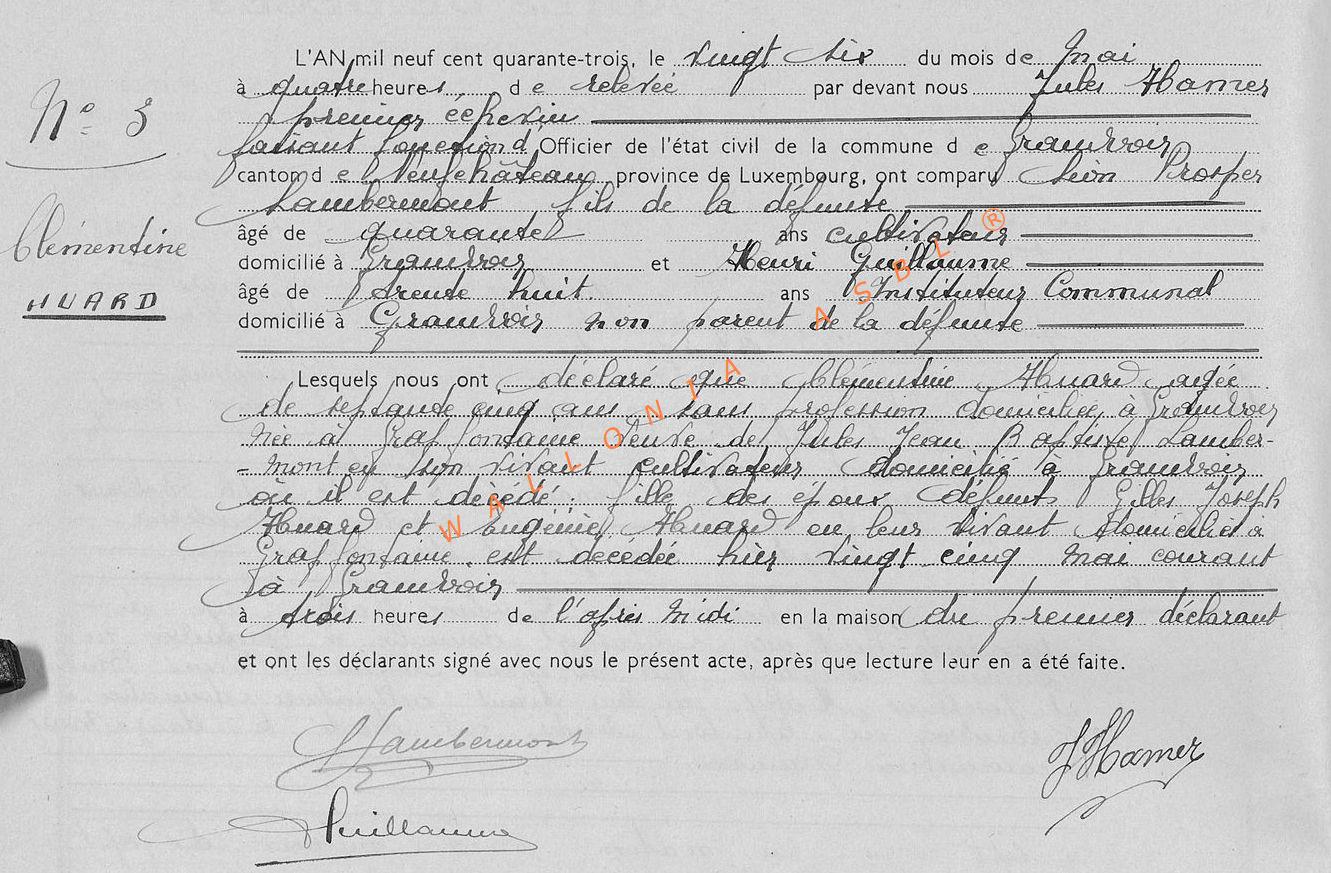 N° 3
Clémentine
HUARD
L'AN mil neuf cent quarante-trois, le vingt six du mois de Mai
à quatre heures, de relevée par devant nous Jules Hamer
premier échevin
faisant fonction d'Officier de l'état civil de la commune de Grandvoir
canton de Neufchâteau province de Luxembourg, ont comparu Léon Prosper
Lambermont fils de la défunte
âgé de quarante ans cultivateur
domicilié à Grandvoir et Henri Guillaume
âgé de trente huit ans Instituteur Communal
domicilié à Grandvoir non parent de la défunte
Lesquels nous ont déclaré que Clémentine Huard agée
de septante cinq ans sans profession domiciliée à Grandvoir
née à Grapfontaine veuve de Jules Jean Baptiste Lamber-
-mont en son vivant cultivateur domicilié à Grandvoir
où il est décédé; fille des époux défunts Gilles Joseph
Huard et Eugénie Huard en leur vivant domiciliés à
Grapfontaine est décédée hier vingt cinq mai courant
à Grandvoir
à trois heures de l'après midi en la maison du premier déclarant
et ont les déclarants signé avec nous le présent acte, après que lecture leur en a été faite.
Lambermont
J Hamer
Guillaume
WALLONIA ASBL ®